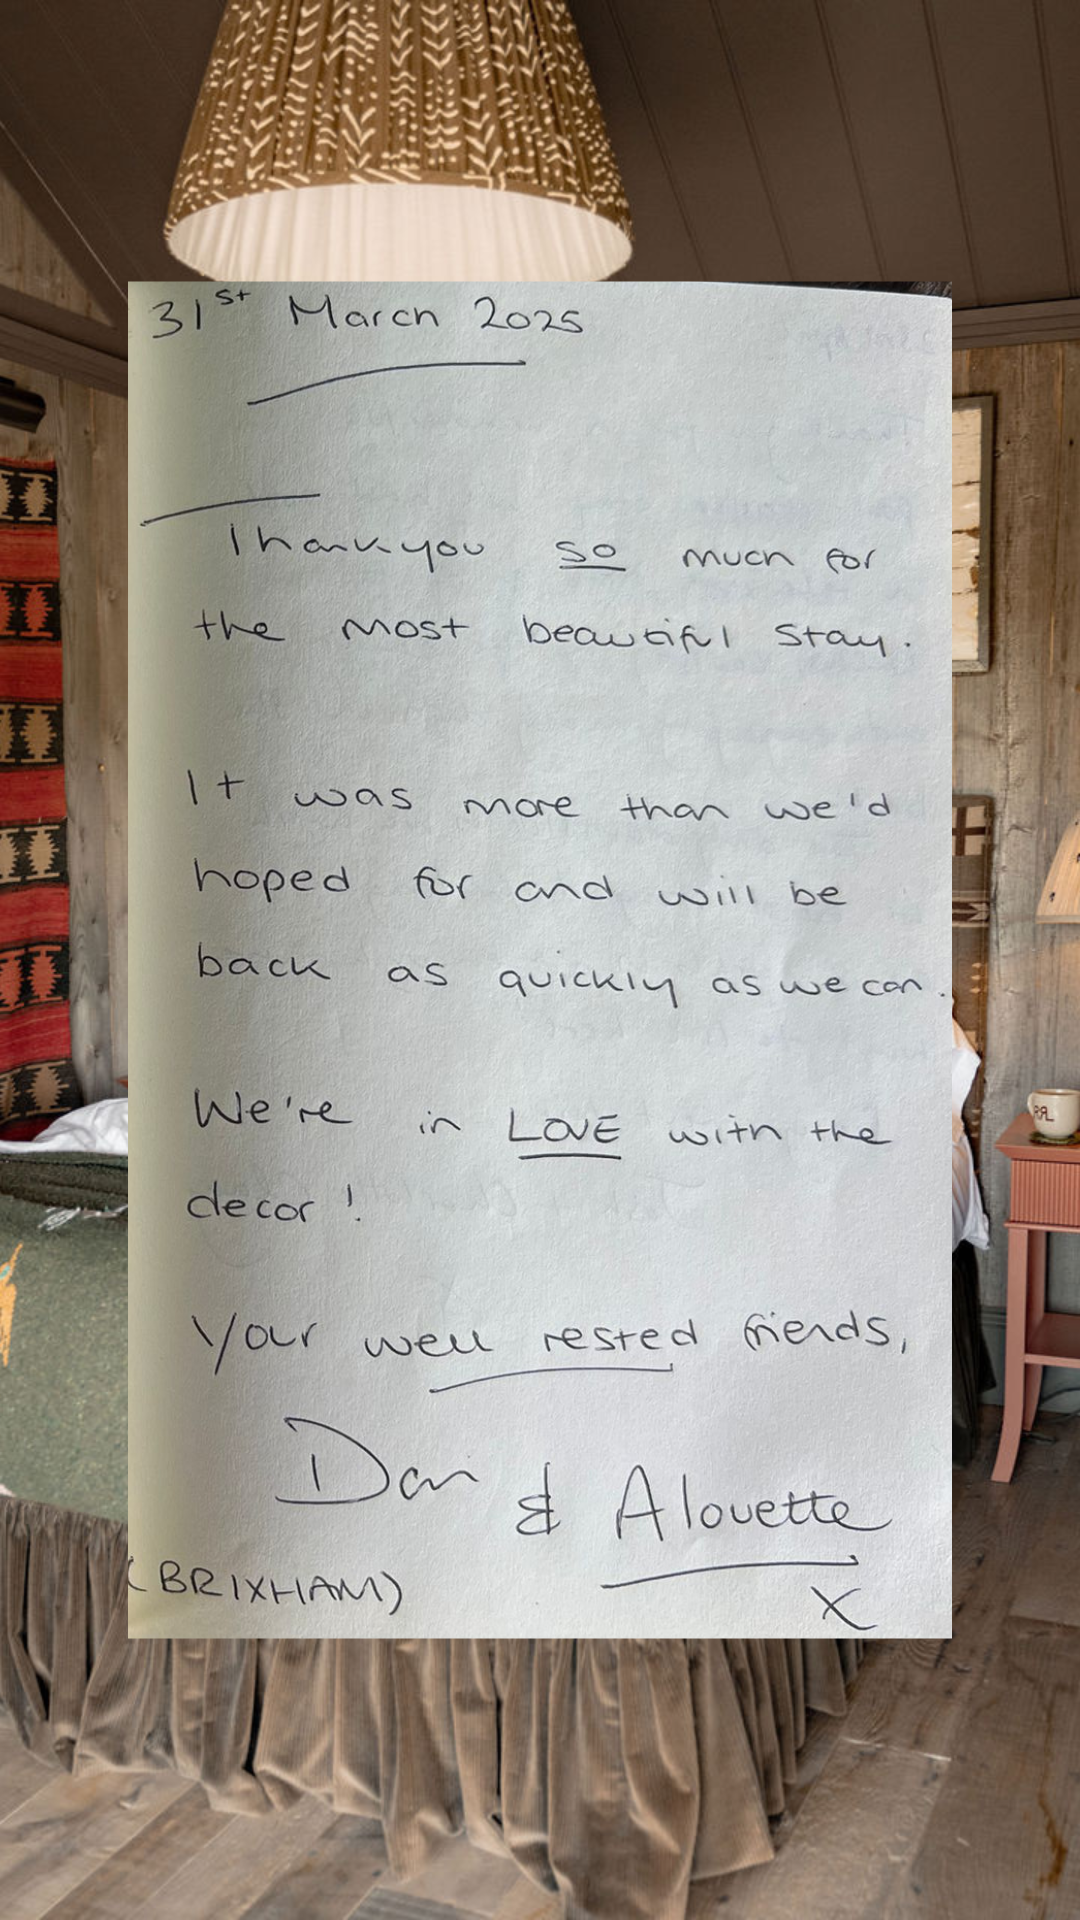 31st March 2025
Thankyou so much for
the most beautiful stay.
It was more than we'd
hoped for and will be
back as quickly as we can.
We're in LOVE with the
decor!
Your well rested friends,
Dan & Alouette
(BRIXHAM) X
RRL